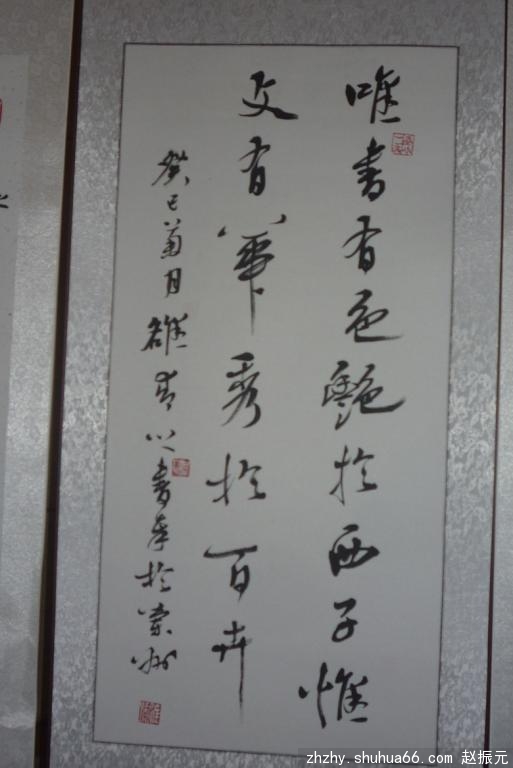 唯書有色艷於西子惟
文有華秀於百卉
癸巳菊月雄
書
於
zhzhy.shuhua66.com 赵振元